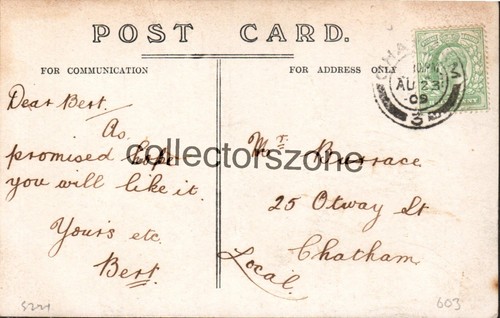 POST CARD.
FOR COMMUNICATION
FOR ADDRESS ONLY
CHATHAM
AU 23
09
3
Dear Bert.
As
promised Hope
you will like it.
Yours etc.
Bert.
collectorszone
Mr Burrace
25 Otway St
Chatham
Local.
5221
603